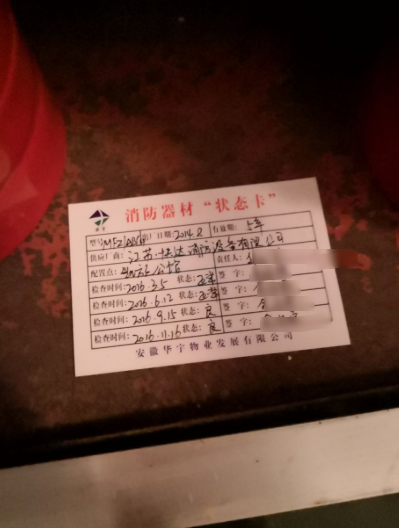 消防器材“状态卡”
型号 MFZ/ABC 出厂日期：2014.8 有效期：5年
供应厂商：江苏 达消防设备有限公司
配置点： 公馆 责任人：
检查时间：2016.3.5 状态： 签字：
检查时间：2016.6.12 状态： 签字：
检查时间：2016.9.15 状态：良 签字：
检查时间：2016.11.16 状态：良 签字：
安徽华宇物业发展有限公司